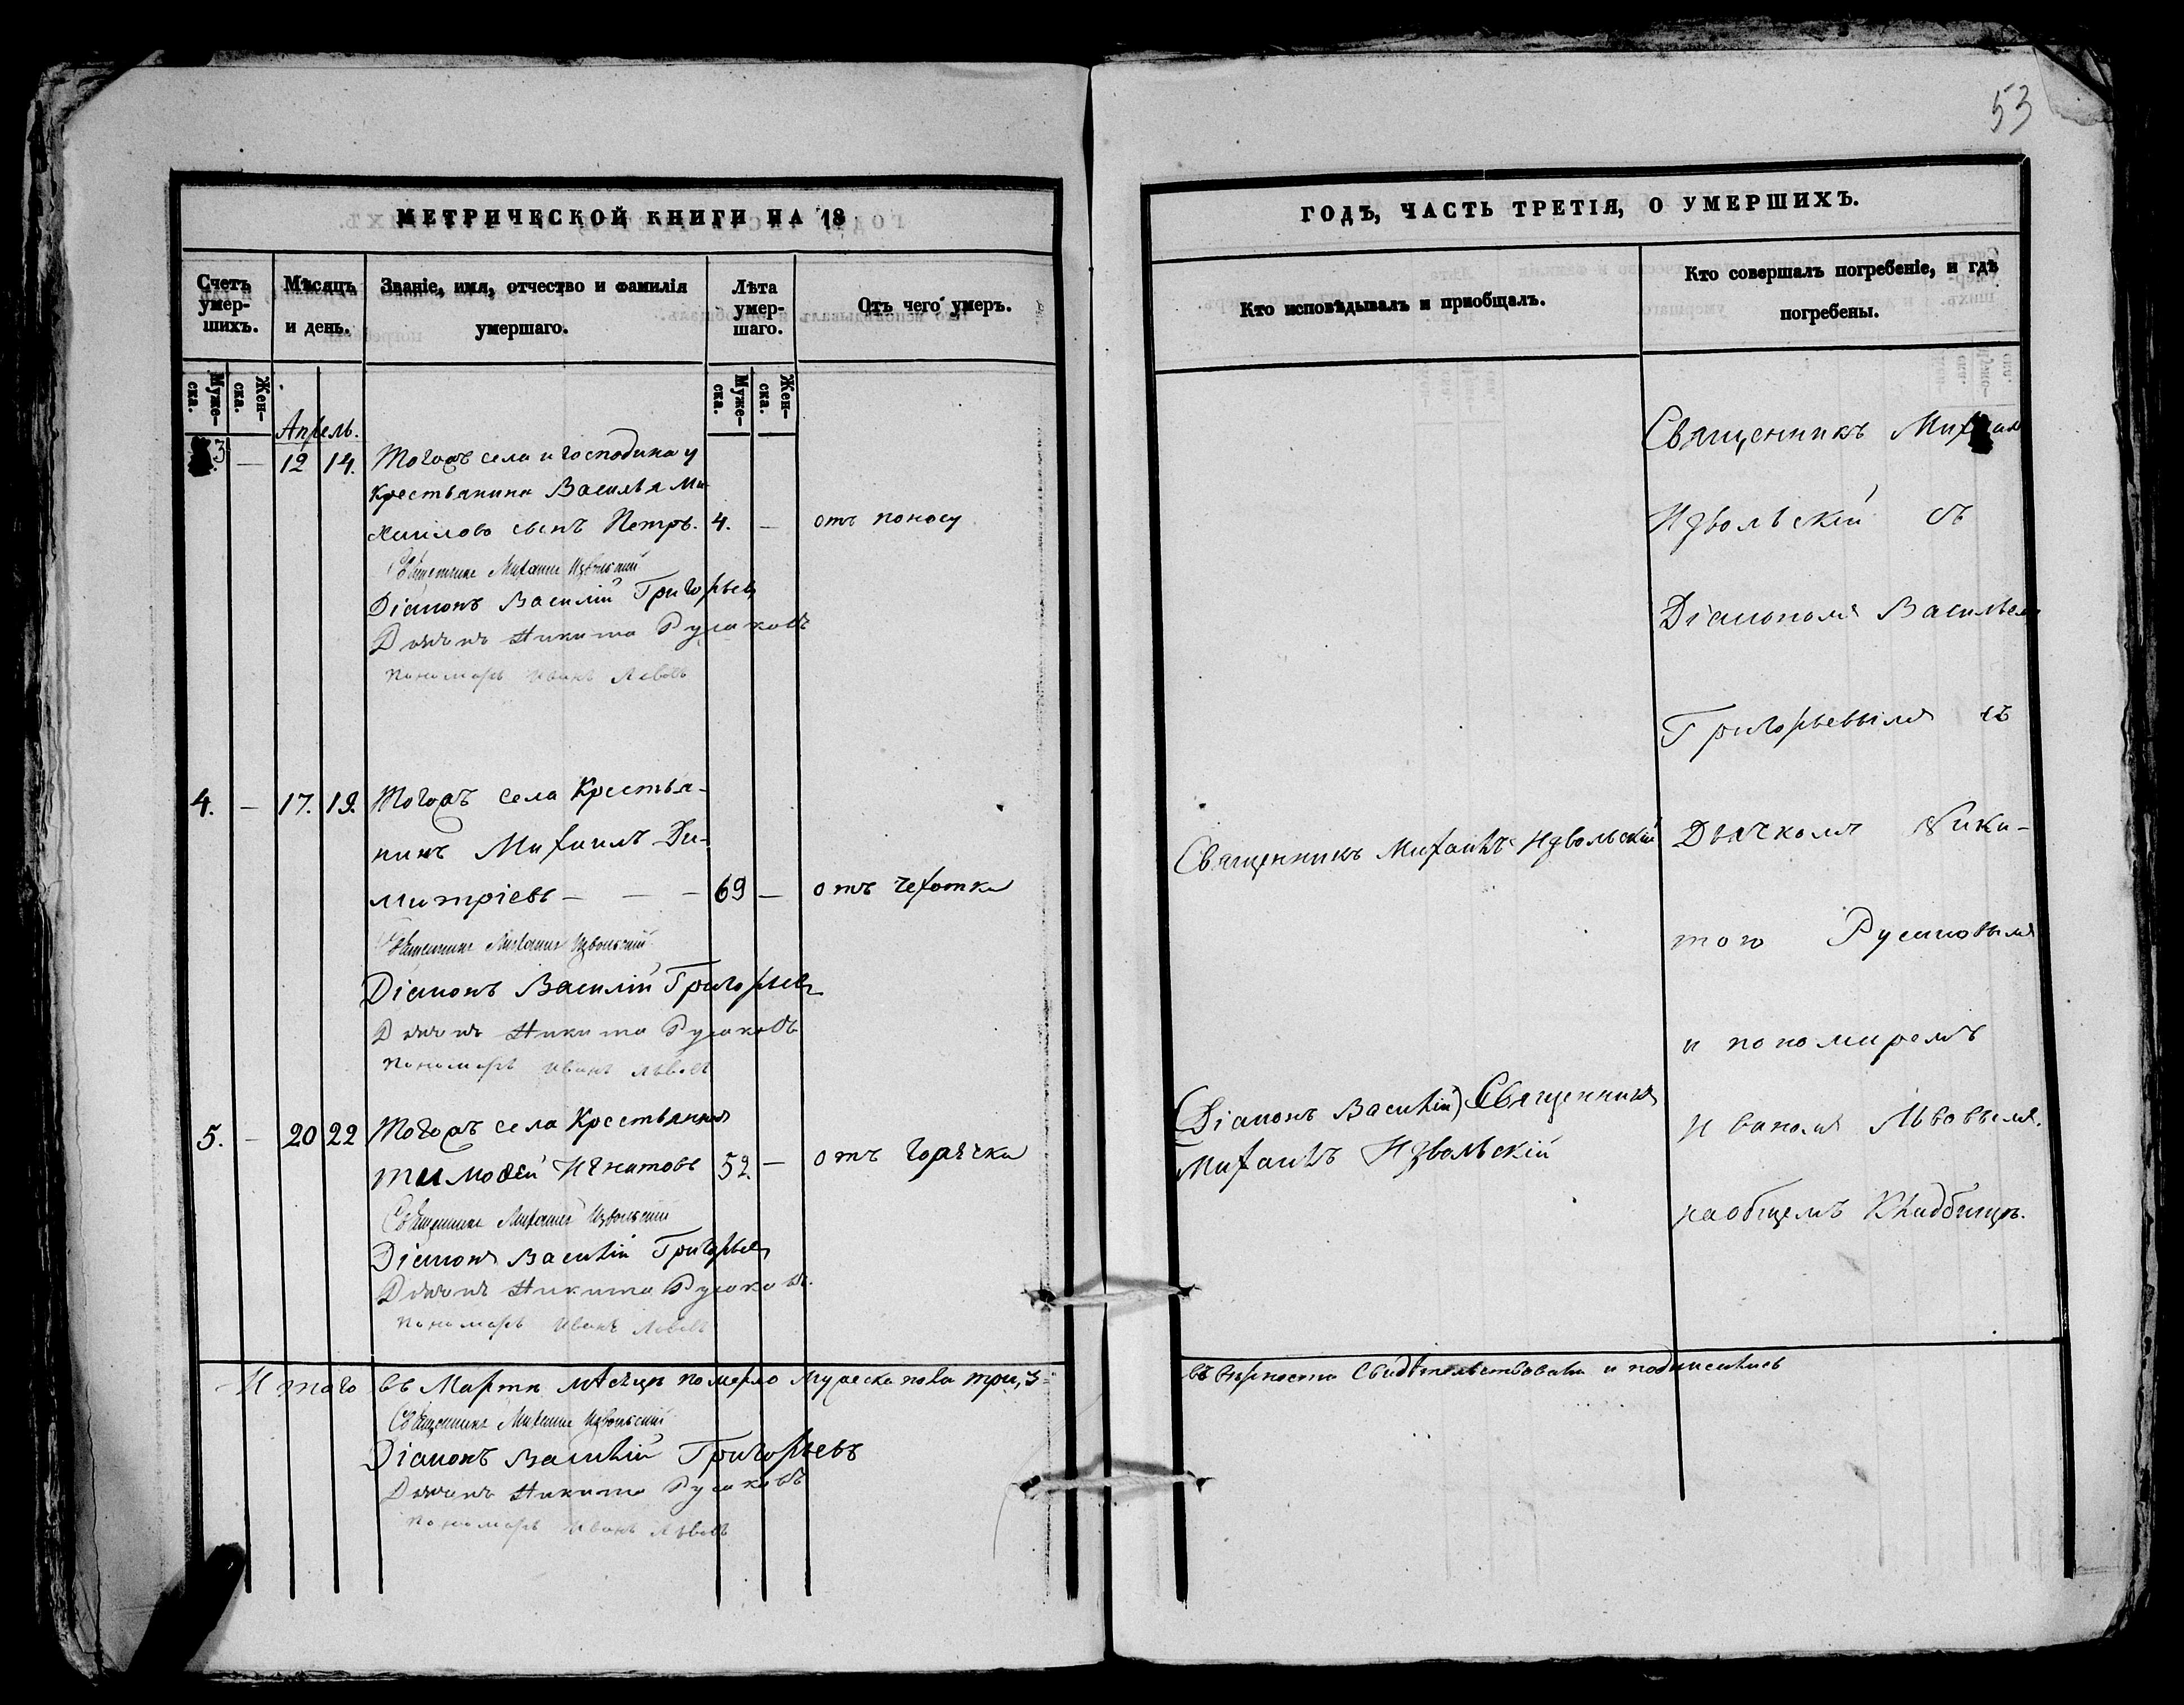 53
МЕТРИЧЕСКОЙ КНИГИ НА 18
Счетъ умер-шихъ.
Мѣсяцъ и день.
Званіе, имя, отчество и фамилія умершаго.
Лѣта умер-шаго.
Отъ чего умеръ.
Муже-ска.
Жен-ска.
Муже-ска.
Жен-ска.
Апрель.
3 — 12 14. Тогожъ села и господина
Крестьянина Василья Ми-
хаилова сынъ Петръ. 4. — отъ поносу
Священникъ Михаилъ Извольскій
Діаконъ Василій Григорьевъ
Дьячекъ Никита Русаковъ
пономарь Иванъ Львовъ
4. — 17. 19. Тогожъ села Крестья-
нинъ Михаилъ Ди-
митріевъ — — — 69 — отъ чехотки
Священникъ Михаилъ Извольскій
Діаконъ Василій Григорьевъ
Дьячекъ Никита Русаковъ
пономарь Иванъ Львовъ
5. — 20 22 Тогожъ села Крестьянинъ
тимофей Игнатовъ 52. — отъ горячки
Священникъ Михаилъ Извольскій
Діаконъ Василій Григорьевъ
Дьячекъ Никита Русаковъ.
пономарь Иванъ Львовъ
Итого въ Марти мѣсяцѣ померло мужеска пола три, 3=
Священникъ Михаилъ Извольскій
Діаконъ Василій Григорьевъ
Дьячекъ Никита Русаковъ
пономарь Иванъ Львовъ
ГОДЪ, ЧАСТЬ ТРЕТІЯ, О УМЕРШИХЪ.
Кто исповѣдывалъ и пріобщалъ.
Кто совершалъ погребеніе, и гдѣ погребены.
Священникъ Михаилъ Извольскій
(Діаконъ Василій) Священникъ
Михаилъ Извольскій
Священникъ Михаил
Извольскій съ
Діакономъ Васильем
Григорьевымъ съ
Дьячкомъ Ники-
тою Русаковымъ
и пономаремъ
Иваномъ Львовымъ.
наобщемъ Кладбищѣ.
въ вѣрности Свидѣтельствовали и подписались